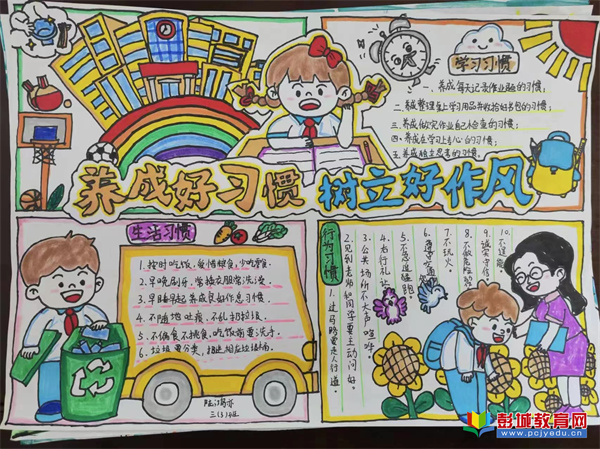 养成好习惯 树立好作风
学习习惯
一、养成每天记录作业的习惯;
二、养成整理爱上学习用品并收拾好书包的习惯;
三、养成做完作业自己检查的习惯;
四、养成在学习上专心的习惯;
五、养成独立思考的习惯.
生活习惯
1. 按时吃饭,爱惜粮食,少吃零食.
2. 早晚刷牙,常换衣服常洗澡
3. 早睡早起养成良好作息习惯.
4. 不随地吐痰,不乱扔垃圾.
5. 不偏食不挑食,吃饭前要洗手.
6. 垃圾要分类,
三(3)班
行为习惯
1. 过马路要走人行道.
2. 见到老师和同学要主动问好.
3. 公共场所不大声喧哗.
4. 右行礼让
5. 不追逐跑
6. 遵守交通
7. 不玩火
8. 不做危险
9. 诚实守信.
10. 不迟到
彭城教育网
www.pcjyedu.cn